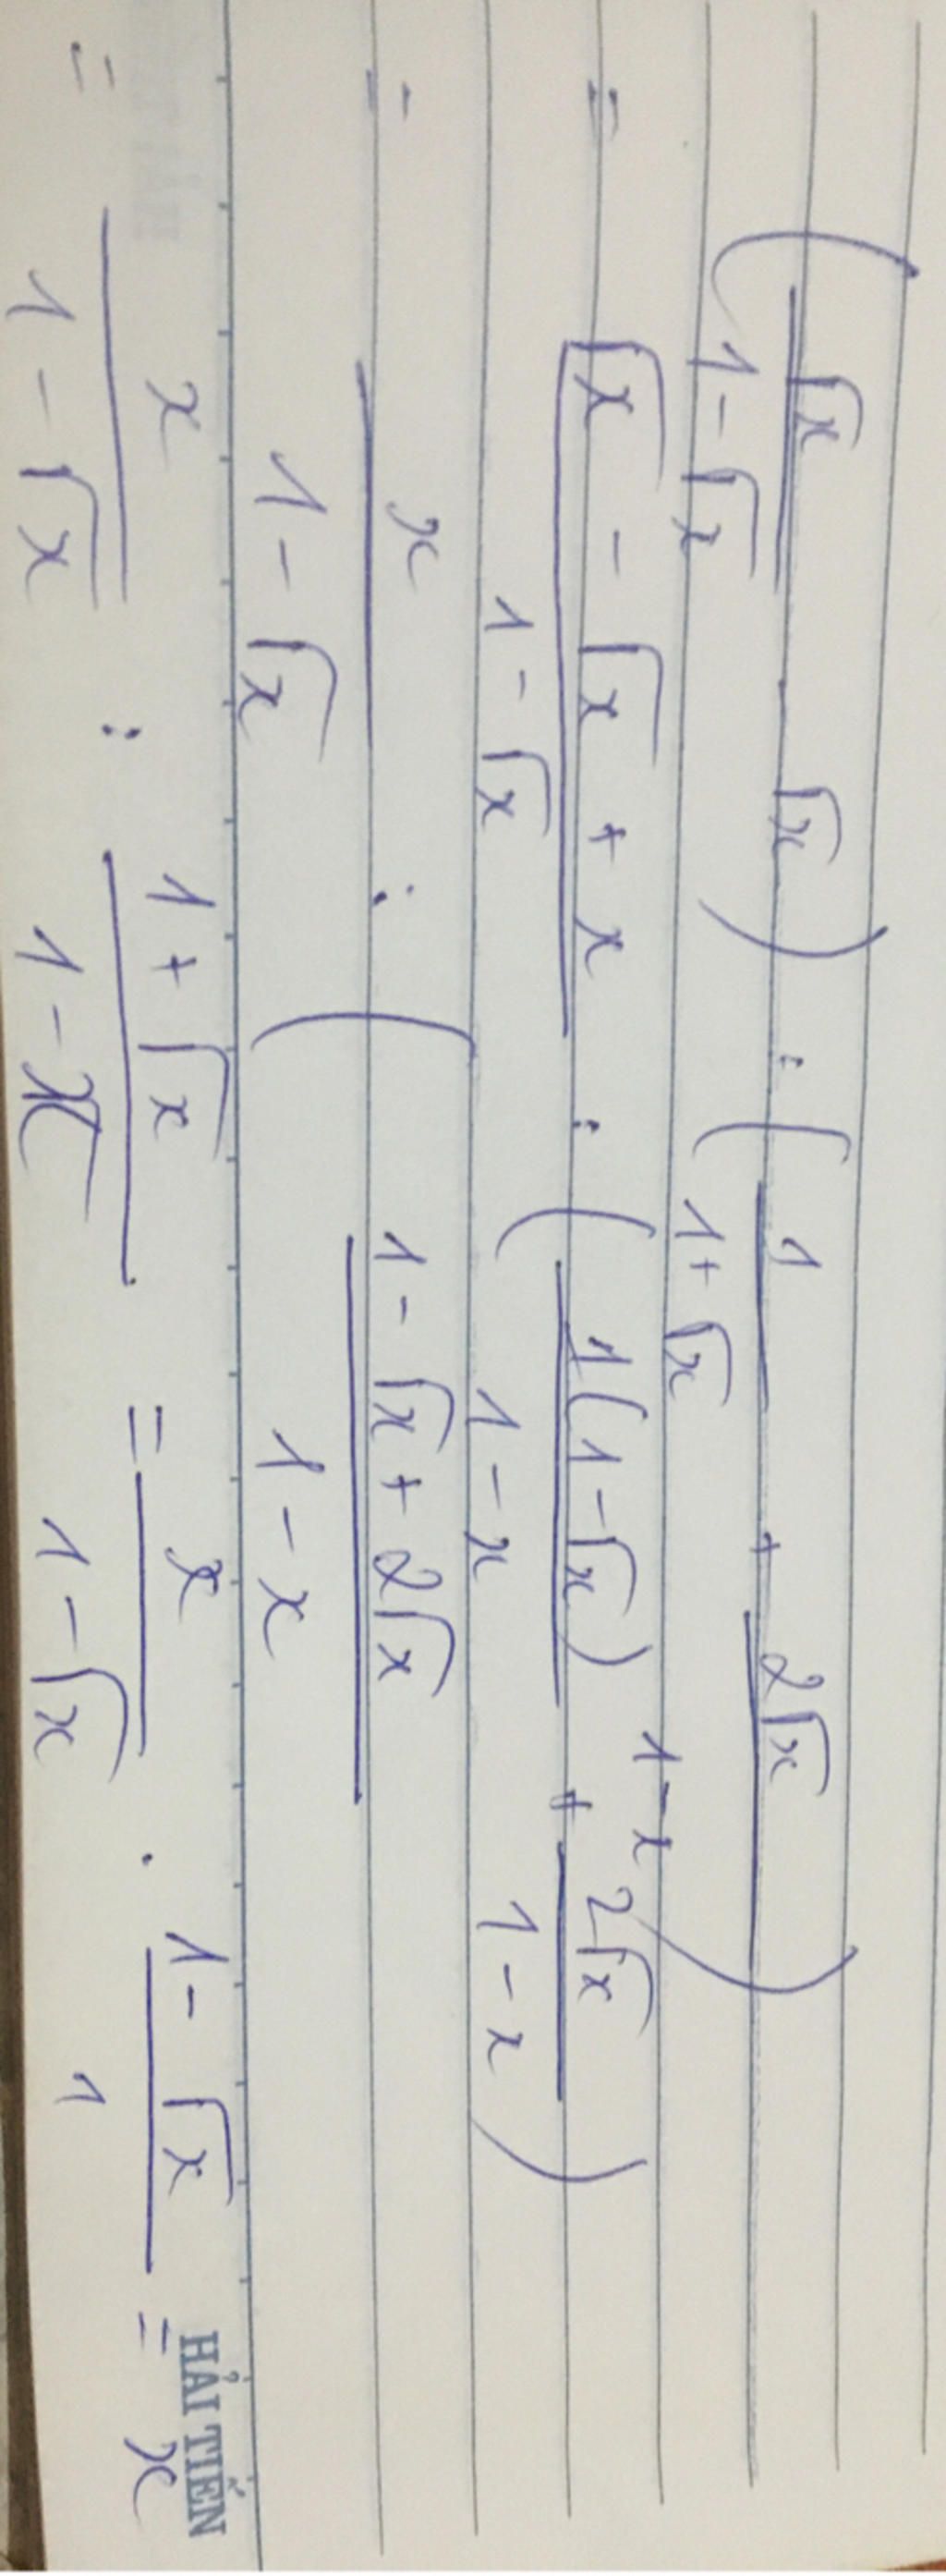 (√x/(1-√x) - √x) : (1/(1+√x) + 2√x/(1-x))
= (√x - √x + x)/(1-√x) : (1(1-√x)/(1-x) + 2√x/(1-x))
= x/(1-√x) : (1-√x+2√x)/(1-x)
= x/(1-√x) : (1+√x)/(1-x) = x/(1-√x) . (1-√x)/1 = x
HẢI TIẾN